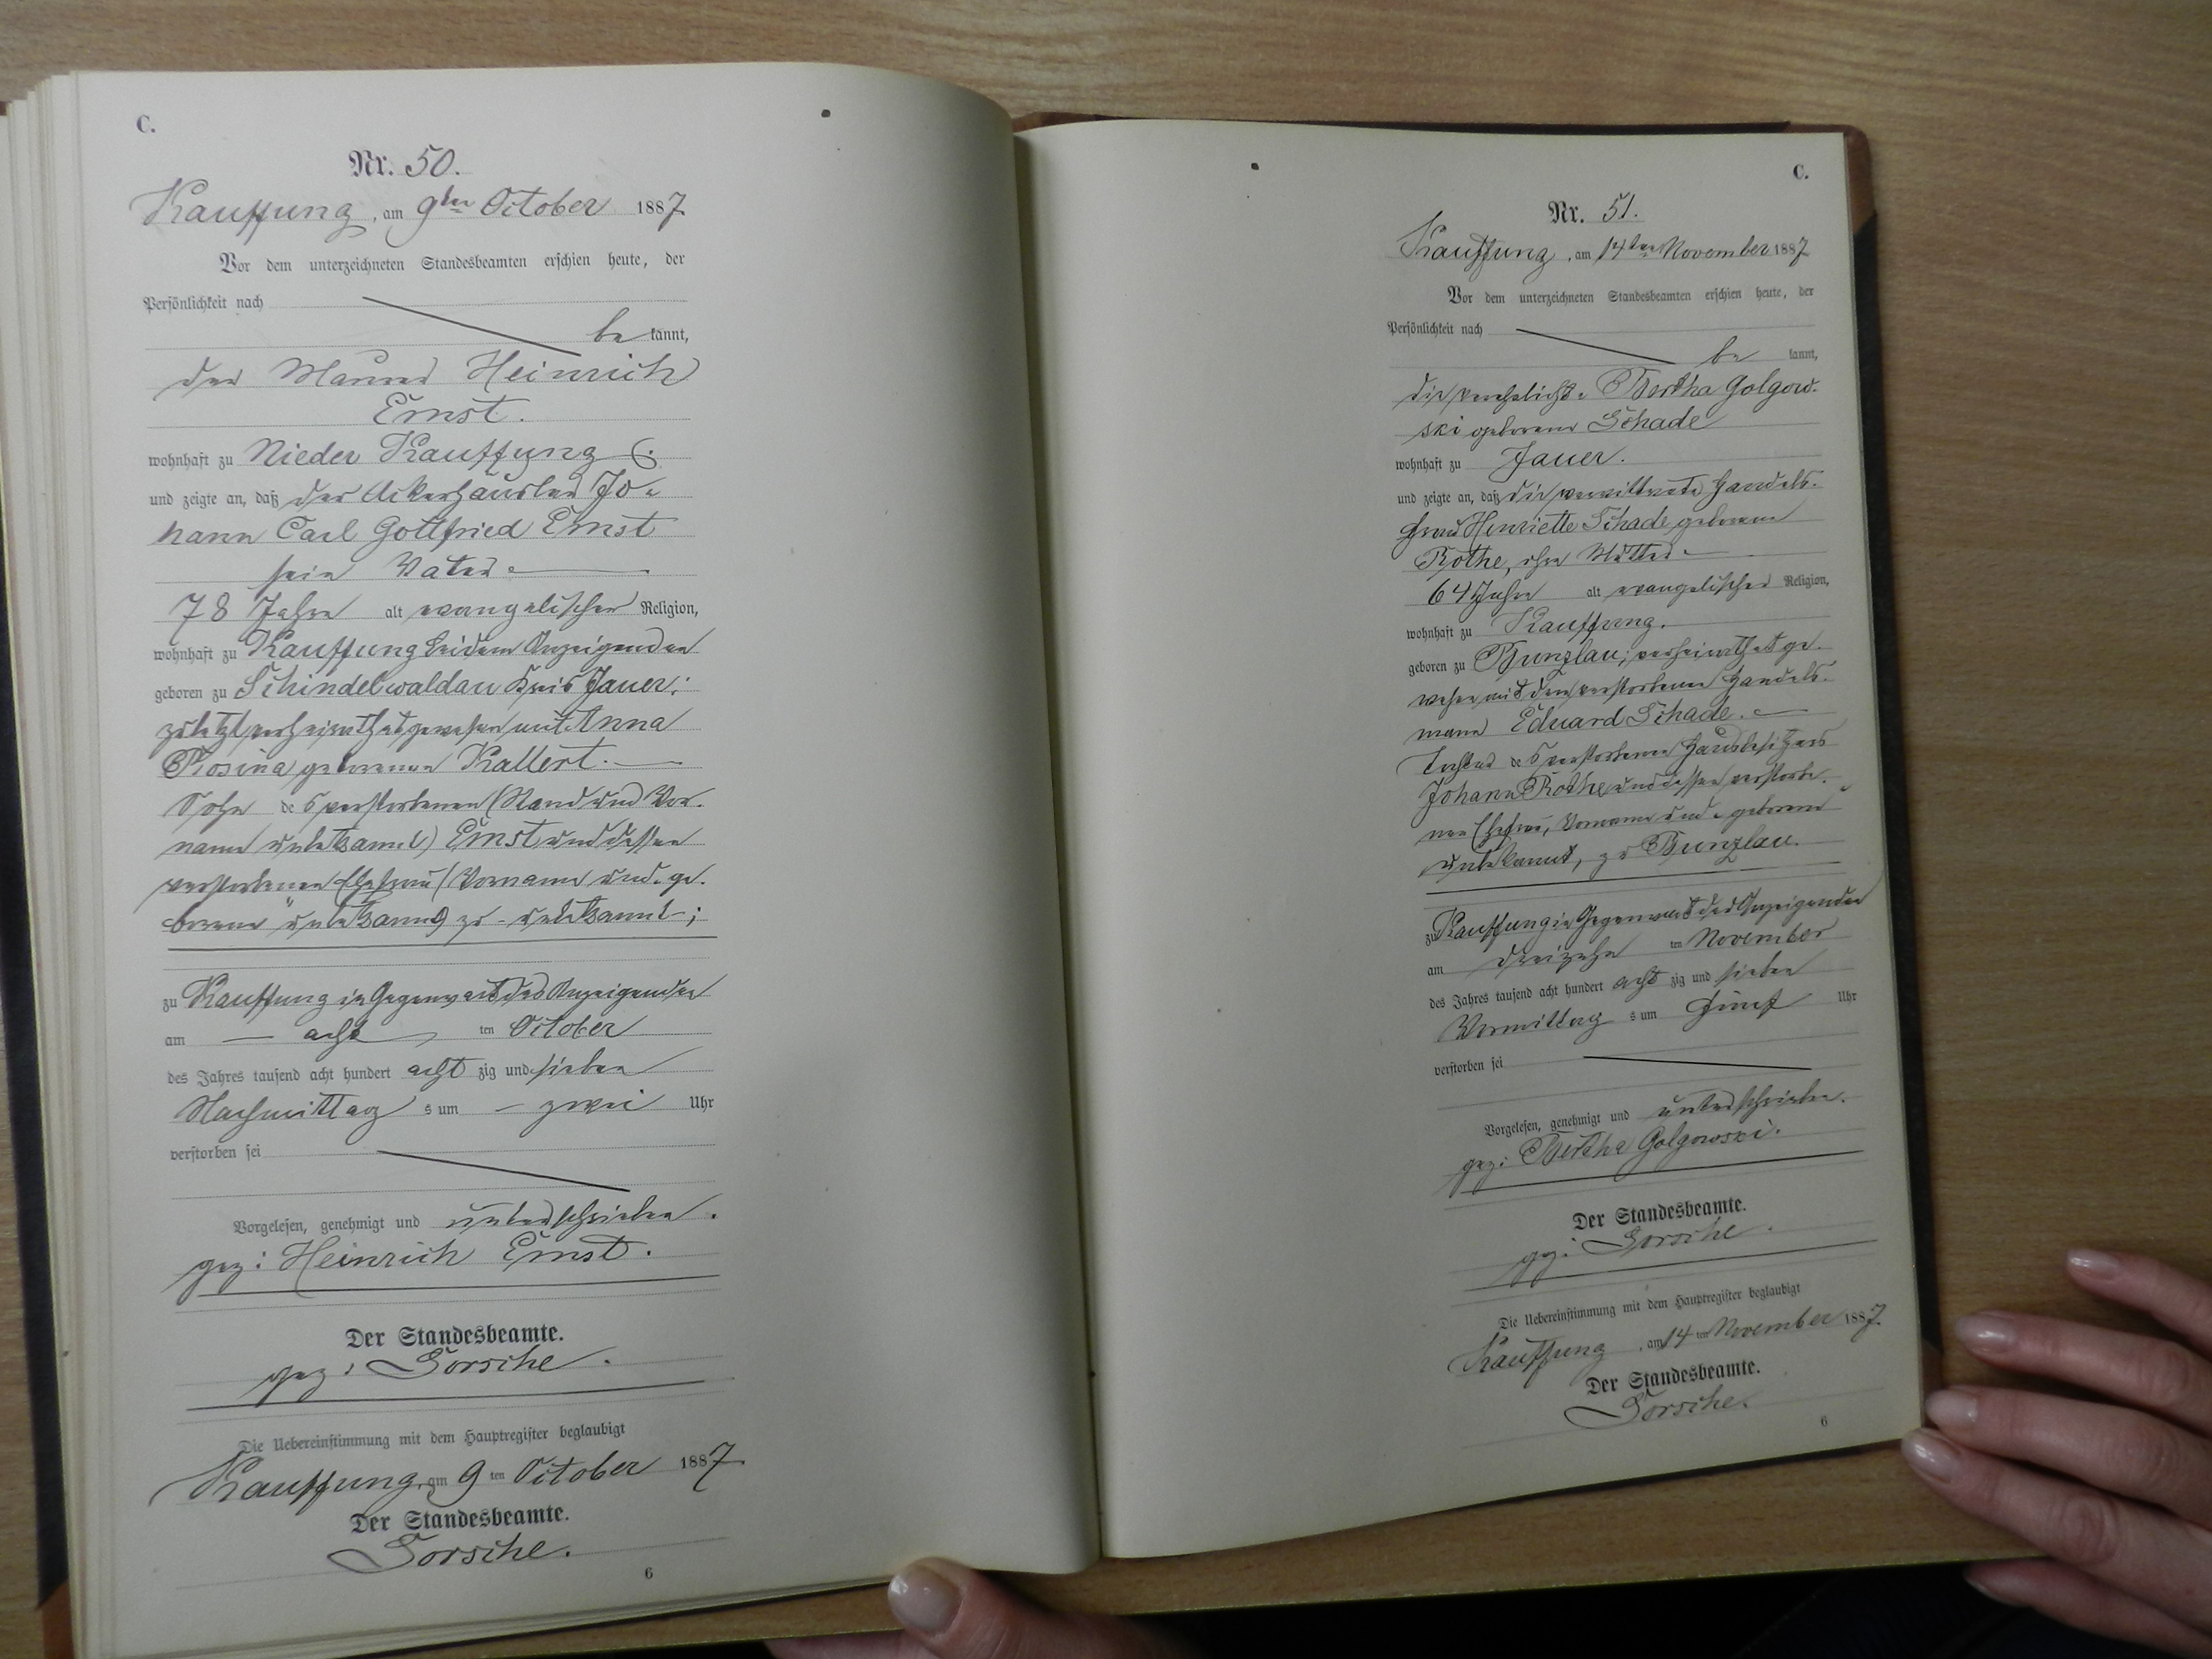 C.
Nr. 50.
Kauffung, am 9ten October 1887
Vor dem unterzeichneten Standesbeamten erschien heute, der
Persönlichkeit nach
be kannt,
der Maurer Heinrich
Ernst.
wohnhaft zu Nieder Kauffung
und zeigte an, daß der Ackerhäusler Jo-
hann Carl Gottfried Ernst
sein Vater
78 Jahre alt evangelischer Religion,
wohnhaft zu Kauffung bei dem Anzeigenden
geboren zu Schindelwaldau Kreis Jauer;
zuletzt verheirathet gewesen mit Anna
Rosina geborenen Kallert.
Sohn des verstorbenen (Stand und Vor-
name unbekannt) Ernst und dessen
verstorbenen Ehefrau (Vorname und ge-
borene unbekannt) zu - unbekannt;
zu Kauffung in Gegenwart des Anzeigenden
am acht ten October
des Jahres tausend acht hundert acht zig und sieben
Nachmittag s um zwei Uhr
verstorben sei
Vorgelesen, genehmigt und unterschrieben.
gez: Heinrich Ernst.
Der Standesbeamte.
gez: Gorsche.
Die Uebereinstimmung mit dem Hauptregister beglaubigt
Kauffung, am 9 ten October 1887
Der Standesbeamte.
Gorsche.
6
C.
Nr. 51.
Kauffung, am 14ten November 1887
Vor dem unterzeichneten Standesbeamten erschien heute, der
Persönlichkeit nach
be kannt,
die verehelichte Bertha Golgow-
ski geborene Schade
wohnhaft zu Jauer.
und zeigte an, daß die verwittwete Handels-
frau Henriette Schade geborene
Rothe, ihre Mutter
64 Jahre alt evangelischer Religion,
wohnhaft zu Kauffung.
geboren zu Bunzlau; verheirathet ge-
wesen mit dem verstorbenen Handels-
mann Eduard Schade.
Tochter des verstorbenen Hausbesitzers
Johann Rothe und dessen verstorbe-
nen Ehefrau, Vorname und geborene
unbekannt, zu Bunzlau.
zu Kauffung in Gegenwart der Anzeigenden
am dreizehn ten November
des Jahres tausend acht hundert acht zig und sieben
Vormittag s um fünf Uhr
verstorben sei
Vorgelesen, genehmigt und unterschrieben.
gez: Bertha Golgowski.
Der Standesbeamte.
gez: Gorsche.
Die Uebereinstimmung mit dem Hauptregister beglaubigt
Kauffung, am 14 ten November 1887
Der Standesbeamte.
Gorsche.
6